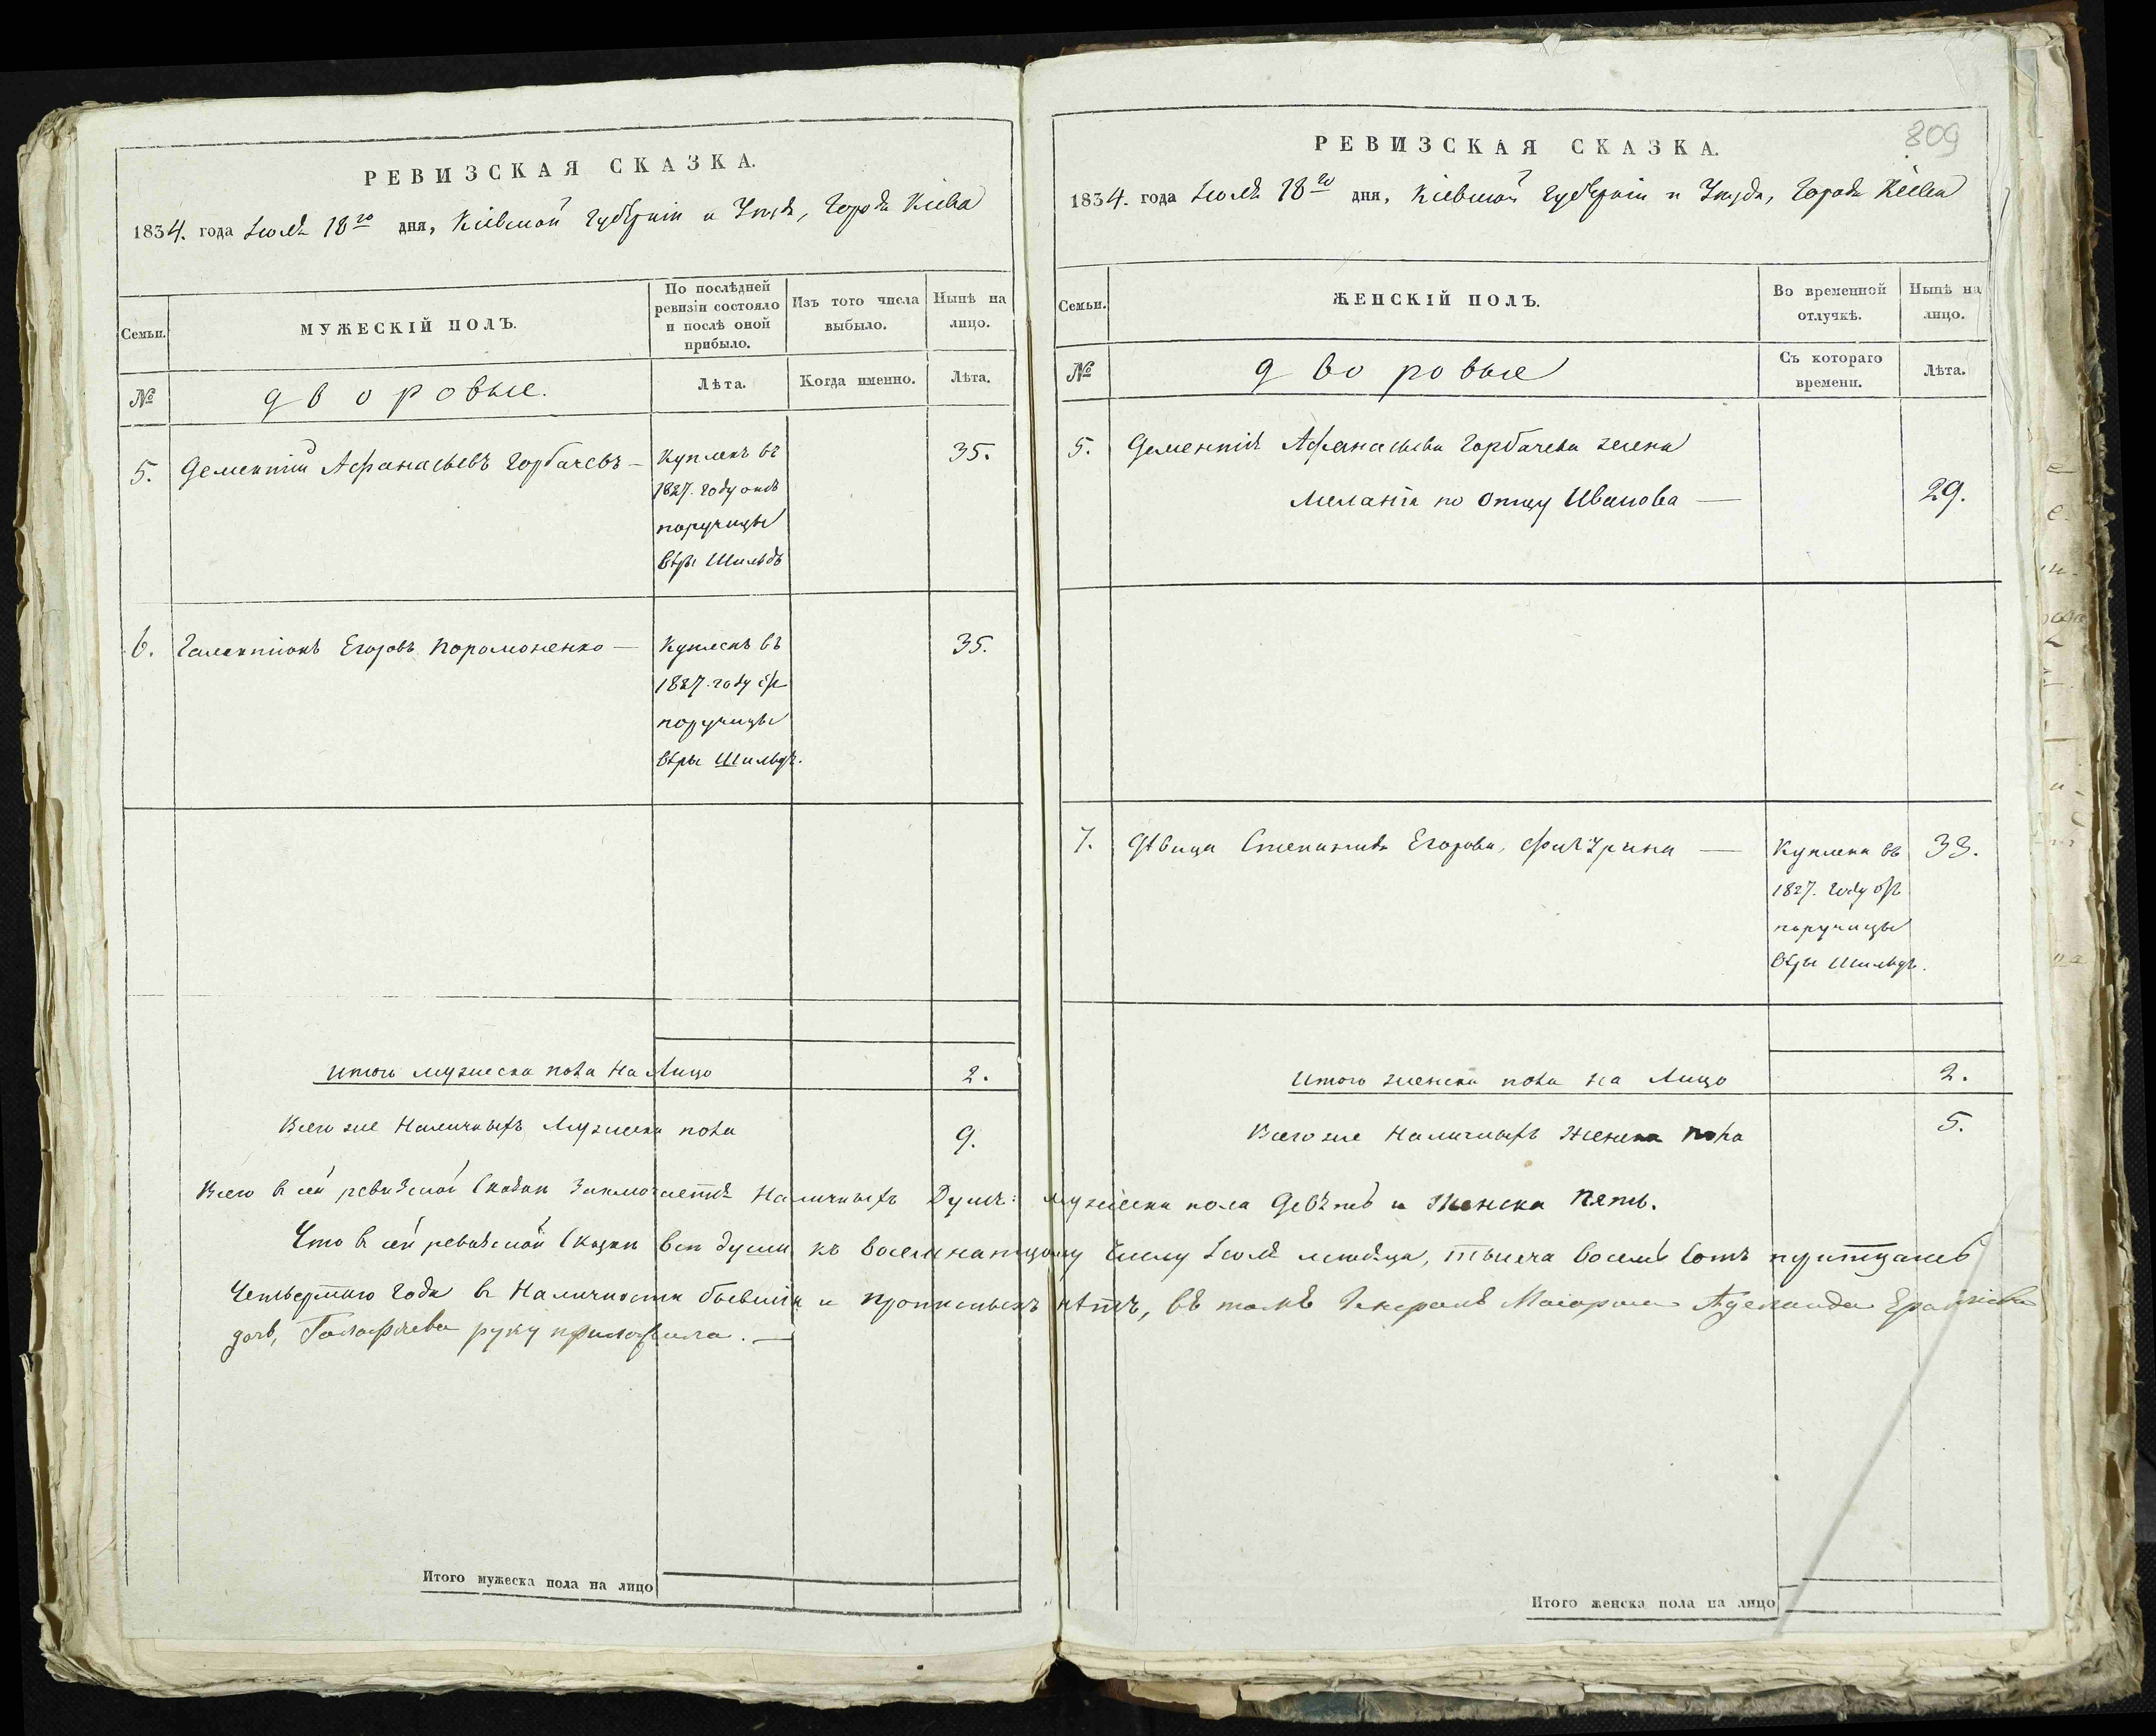 РЕВИЗСКАЯ СКАЗКА.
1834. года Іюля 18го дня, Кіевской Губерніи и Уезда, Города Кіева
Семьи.
МУЖЕСКІЙ ПОЛЪ.
По послѣдней
ревизіи состояло
и послѣ оной
прибыло.
Изъ того числа
выбыло.
Нынѣ на
лицо.
№
дворовые.
Лѣта.
Когда именно.
Лѣта.
5.
Дементій Афанасьевъ Горбачевъ —
Купленъ въ
1827. году отъ
поручицы
Вѣры Шильдъ
35.
6.
Галактіонъ Егоровъ Поромоненко —
Купленъ въ
1827. году отъ
поручицы
Вѣры Шильдъ.
35.
итого мужеска пола На Лицо
2.
Всего же Наличныхъ Мужеска пола
9.
РЕВИЗСКАЯ СКАЗКА.
809
1834. года Іюля 18го дня, Кіевской Губерніи и Уезда, Города Кіева
Семьи.
ЖЕНСКІЙ ПОЛЪ.
Во временной
отлучкѣ.
Нынѣ на
лицо.
№
дворовые
Съ котораго
времени.
Лѣта.
5.
Дементія Афанасьева Горбачева жена
Меланія по Отцу Иванова —
29.
7.
Дѣвица Степанида Егорова, —
Куплена въ
1827. Году отъ
поручицы
Вѣры Шильдъ.
33.
итого женска пола на Лицо
2.
Всего же Наличныхъ Женска пола
5.
Всего в сей ревизской Сказки Заключается Наличныхъ Душъ: мужеска пола Девять и Женска Пять.
Что в сей ревизской Сказки все души къ восемнатцому Числу Іюля месяца, тысяча восемь Сотъ тритцать
Четвертаго Года в Наличности бывшія и прописныхъ нѣтъ, въ томъ Генералъ Маіорша Аделаида
дочь, руку приложила. —
Итого мужеска пола на лицо
Итого женска пола на лицо